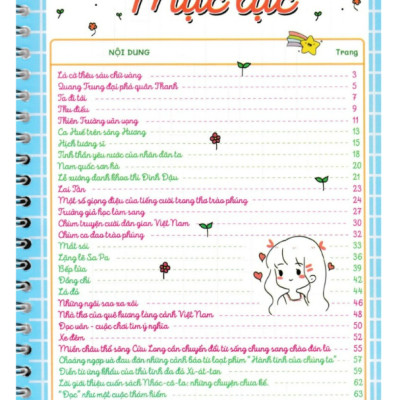 Mục lục
NỘI DUNG Trang
Lá cờ thêu sáu chữ vàng 3
Quang Trung đại phá quân Thanh 5
Ta đi tới 7
Thu điếu 9
Thiên Trường vãn vọng 11
Ca Huế trên sông Hương 13
Hịch tướng sĩ 15
Tinh thần yêu nước của nhân dân ta 18
Nam quốc sơn hà 20
Lễ xướng danh khoa thi Đinh Dậu 21
Lai Tân 23
Một số giọng điệu của tiếng cười trong thơ trào phúng 24
Trưởng giả học làm sang 27
Chùm truyện cười dân gian Việt Nam 30
Chùm ca dao trào phúng 32
Mắt sói 33
Lặng lẽ Sa Pa 36
Bếp lửa 39
Đồng chí 42
Lá đỏ 44
Những ngôi sao xa xôi 46
Nhà thơ của quê hương làng cảnh Việt Nam 48
Đọc văn - cuộc chơi tìm ý nghĩa 50
Xe đêm 52
Miền châu thổ sông Cửu Long cần chuyển đổi từ sống chung sang chào đón lũ 55
Choáng ngợp và đau đớn những cảnh báo từ loạt phim "Hành tinh của chúng ta" 57
Diễn từ ứng khẩu của thủ lĩnh da đỏ Xi-át-tơn 60
Lời giới thiệu cuốn sách Nhóc-cô-la: những chuyện chưa kể. 62
"Đọc" như một cuộc thám hiểm 63